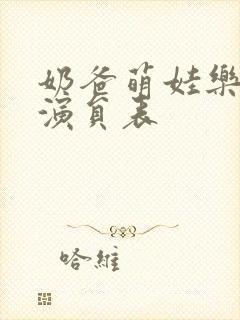 奶爸萌娃樂
演員表
哈維